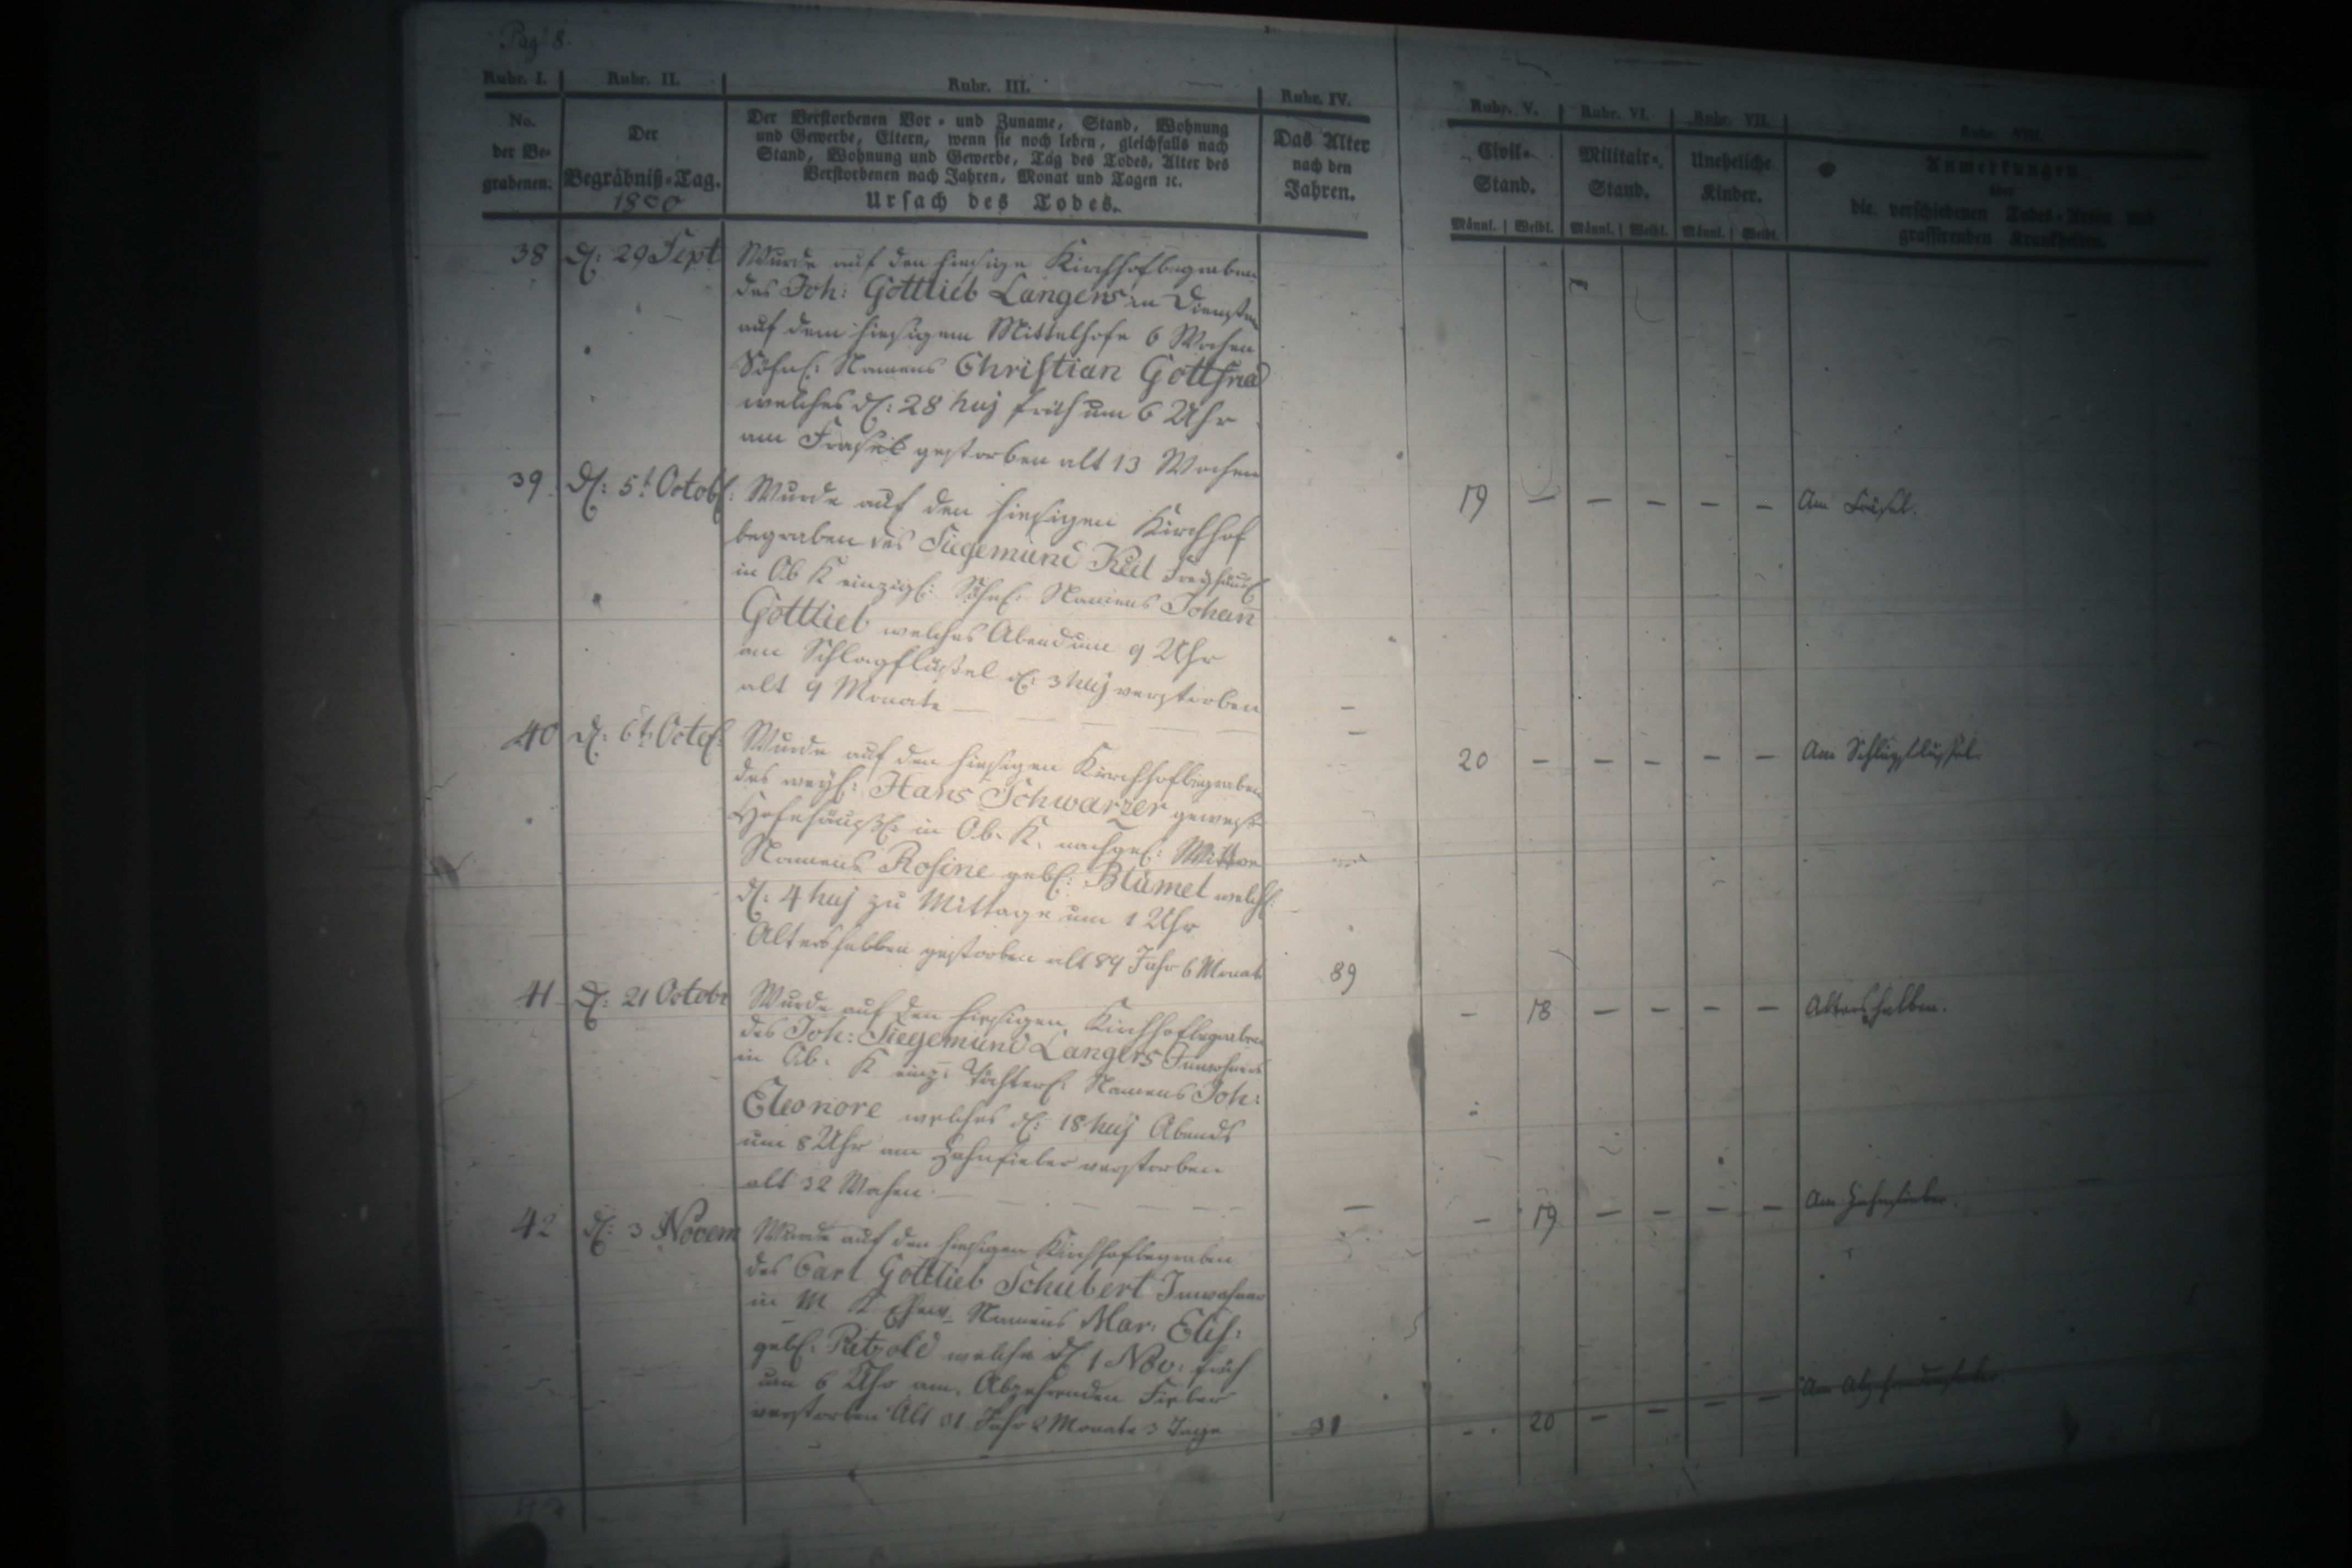 Pag: 8.
Rubr. I. Rubr. II. Rubr. III. Rubr. IV. Rubr. V. Rubr. VI. Rubr. VII. Rubr. VIII.
No. der Be- grabenen.
Der Begräbniß-Tag. 1800
Der Verstorbenen Vor- und Zuname, Stand, Wohnung
und Gewerbe, Eltern, wenn sie noch leben, gleichfalls nach
Stand, Wohnung und Gewerbe, Tag des Todes, Alter des
Verstorbenen nach Jahren, Monat und Tagen ꝛc.
Ursach des Todes.
Das Alter nach den Jahren.
Civil- Stand.
Militair- Stand.
Uneheliche Kinder.
Anmerkungen über
die verschiedenen Todes-Arten und
grassirenden Krankheiten.
Männl. Weibl. Männl. Weibl. Männl. Weibl.
38 d: 29 Sept Wurde auf den hiesigen Kirchhof begraben
des Joh: Gottlieb Langers in Diensten
auf dem hiesigem Mittelhofe 6 Wochen
Söhnl: Namens Christian Gottfried
welches d: 28 huj früh um 6 Uhr
am gestorben alt 13 Wochen
19 — — — — — Am
39. d: 5t Octobr: Wurde auf den hiesigen Kirchhof
begraben des Siegemund Keil Freyhäusl
in Ob K einzigs: Söhnl: Namens Johañ
Gottlieb welches Abend um 9 Uhr
am Schlagflüßel d: 3 huj verstorben
alt 9 Monate — — — — —
20 — — — — — Am Schlagflüßel.
40 d: 6t Octbr: Wurde auf den hiesigen Kirchhof begraben
des weyl: Hans Schwarzer gewese
Hofehäusl: in Ob. K. nachgel: Wittwe
Namens Rosine gebl: Blümel welch:
d: 4 huj zu Mittage um 1 Uhr
Altershalben gestorben alt 89 Jahr 6 Monat 89
- 18 — — — — Altershalben.
41 d: 21 Octobr Wurde auf den hiesigen Kirchhof begraben
des Joh: Siegemund Langers Innwohners
in Ob. K einz: Töchterl: Namens Joh:
Eleonore welches d: 18 huj Abends
um 8 Uhr am Zahnfieber verstorben
alt 32 Wochen — — — — —
- 19 — — — — Am Zahnfieber.
42 d: 3 Novem Wurde auf den hiesigen Kirchhof begraben
des Carl Gottlieb Schubert Innwohner
in M K Ehew. Namens Mar: Elis:
gebl: Patzold welche d 1 Nov: früh
um 6 Uhr am Abzehrenden Fieber
verstorben Alt 31 Jahr 2 Monate 3 Tage 31
- 20 — — — — Am Abzehrendenfieber.